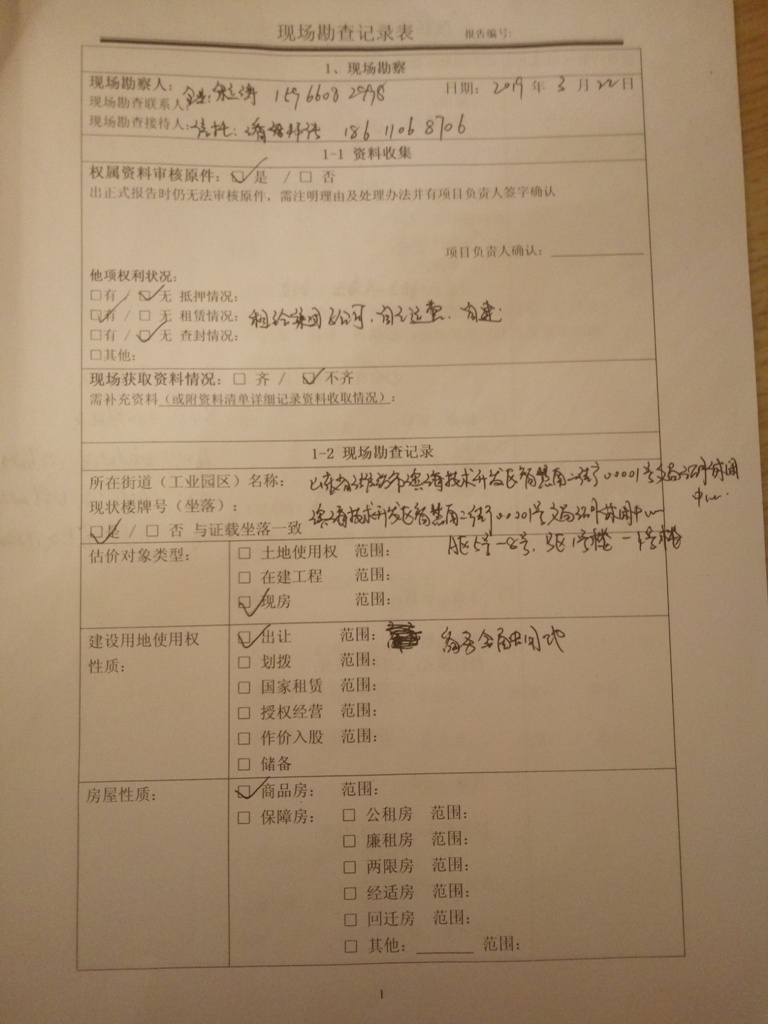 现场勘查记录表 报告编号:
1、现场勘察
现场勘察人: 日期: 2019 年 3 月 22 日
现场勘查联系人: 159 6608 2998
现场勘查接待人: 186 1106 8706
1-1 资料收集
权属资料审核原件: ☑ 是 / □ 否
出正式报告时仍无法审核原件,需注明理由及处理办法并有项目负责人签字确认
项目负责人确认:
他项权利状况:
□有 / ☑ 无 抵押情况:
☑有 / □ 无 租赁情况: 租给集团公司,自主运营,自建
□有 / ☑ 无 查封情况:
□其他:
现场获取资料情况: □ 齐 / ☑ 不齐
需补充资料(或附资料清单详细记录资料收取情况):
1-2 现场勘查记录
所在街道(工业园区)名称: 山东省潍坊市滨海技术开发区智慧南二街00001号
现状楼牌号(坐落): 滨海技术开发区智慧南二街00001号
☑是 / □ 否 与证载坐落一致
估价对象类型: □ 土地使用权 范围:
□ 在建工程 范围:
☑ 现房 范围:
建设用地使用权 ☑ 出让 范围:
性质: □ 划拨 范围:
□ 国家租赁 范围:
□ 授权经营 范围:
□ 作价入股 范围:
□ 储备
房屋性质: ☑ 商品房: 范围:
□ 保障房: □ 公租房 范围:
□ 廉租房 范围:
□ 两限房 范围:
□ 经适房 范围:
□ 回迁房 范围:
□ 其他: 范围:
1